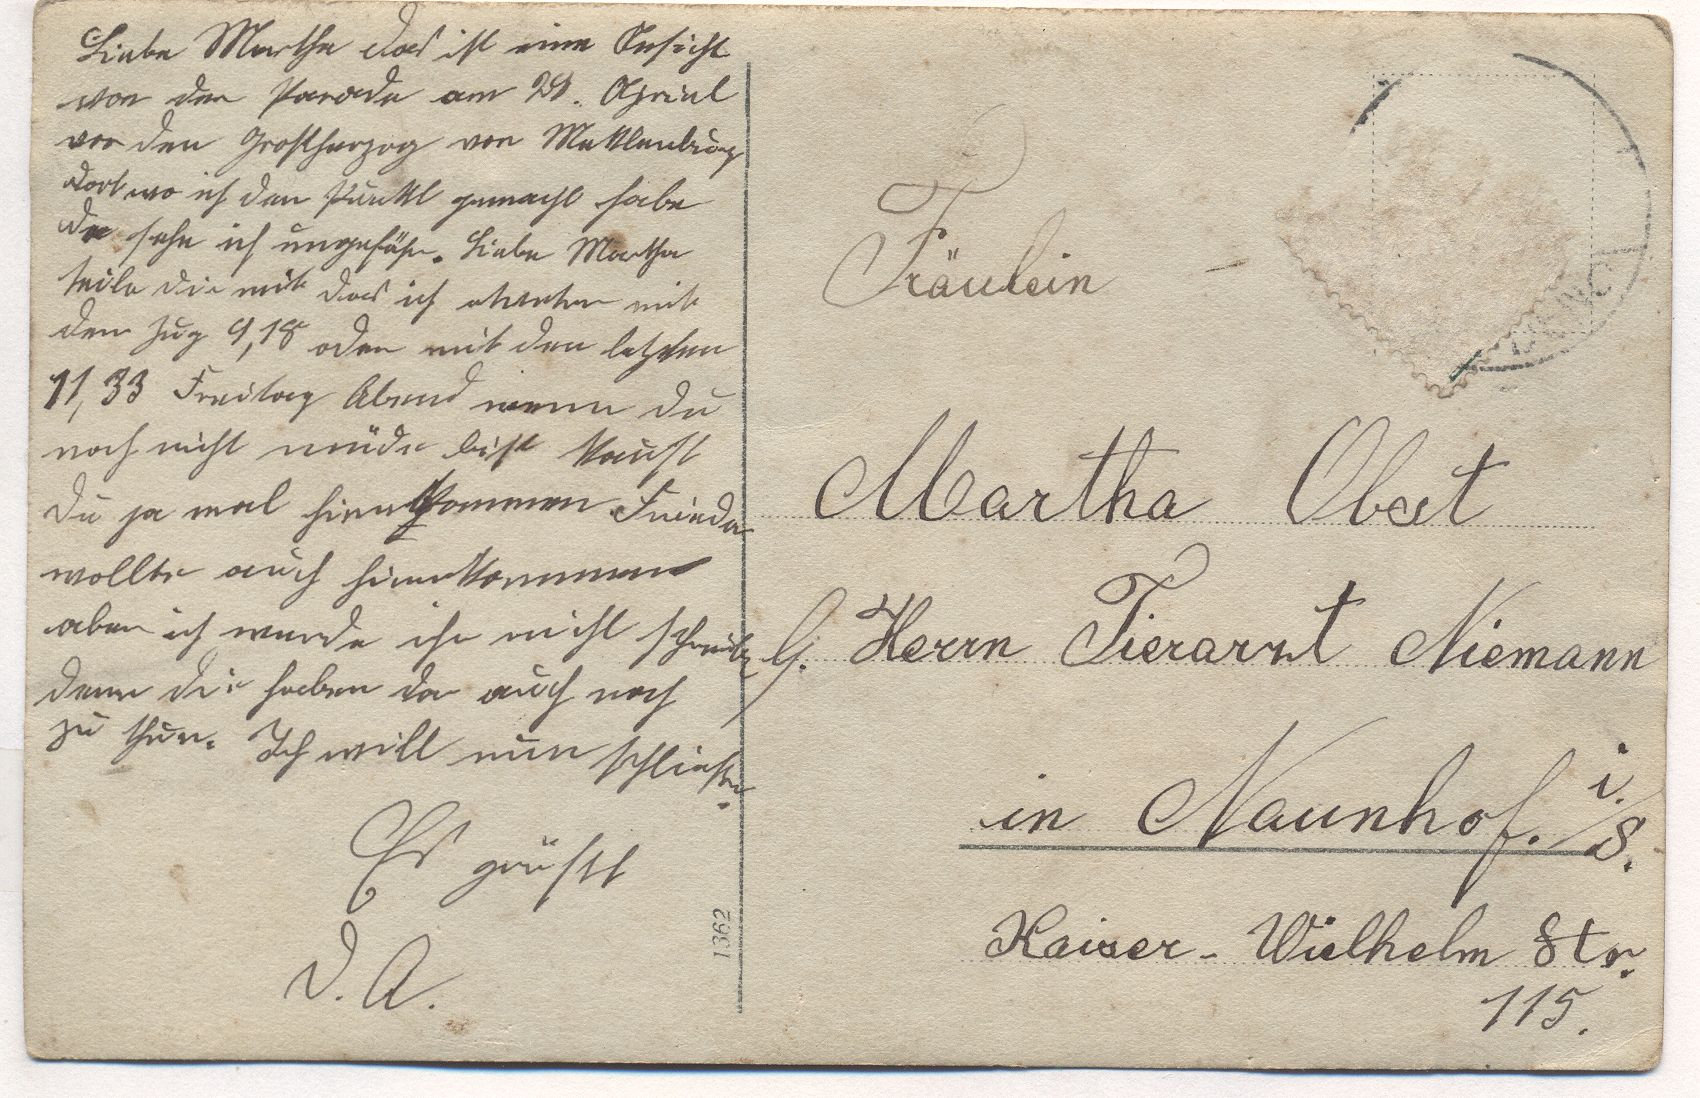 Liebe Martha das ist eine Ansicht
von der Parade am 29. Aprial
vor den Großherzog von Meklenburg
dort wo ich den Punkt gemacht habe
da sehe ich ungefähr. Liebe Martha
teile dir mit das ich mit
dem Zug 9,18 oder mit den letzten
11,33 Freitag Abend wenn du
noch nicht müde bist kannst
du ja mal hinnkommen Frieda
wollte auch hinnkommen
aber ich werde ihr nicht schreiben
denn die haben da auch noch
zu thun. Ich will nun schließen.
Es grüßt
D. A.
1362
Fräulein
Martha Obst
b. Herrn Tierarzt Niemann
in Naunhof. i./S.
Kaiser-Wielhelm Str.
115.